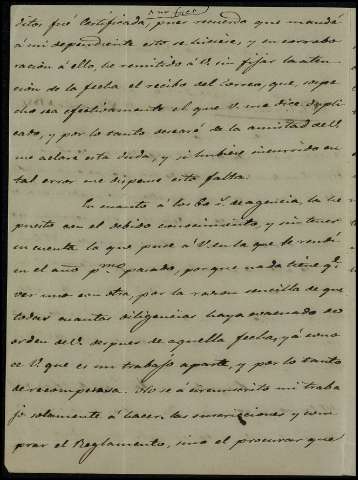 ditos fué Certificada, pues recuerdo que mandé
á mi dependiente esto se hiciese, y en corrobo
ración á ello, he remitido á V. sin fijar la aten-
ción de la fecha el recibo del Correo, que, sospe
cho sea efectivamente el que V. me dice dupli
cado, y por lo tanto desearé de la amistad de V.
me aclare esta duda, y si hubiese incurrido en
tal error me dispense esta falta.
En cuanto á los de agencia, la he
puesto con el debido conocimiento, y sin tener
en cuenta la que puse á V. en la que se rendí
en el año pmo pasado, porque nada tiene qe
ver una con otra, por la razon sencilla de que
todas cuantas diligencias haya evacuado de
orden de V. despues de aquella fecha, ya cono
ce V. que es un trabajo aparte, y por lo tanto
de recompensa. No se á circunscrito mi traba
jo solamente á hacer las suscriciones y com
prar el Reglamento, sino el procurar que